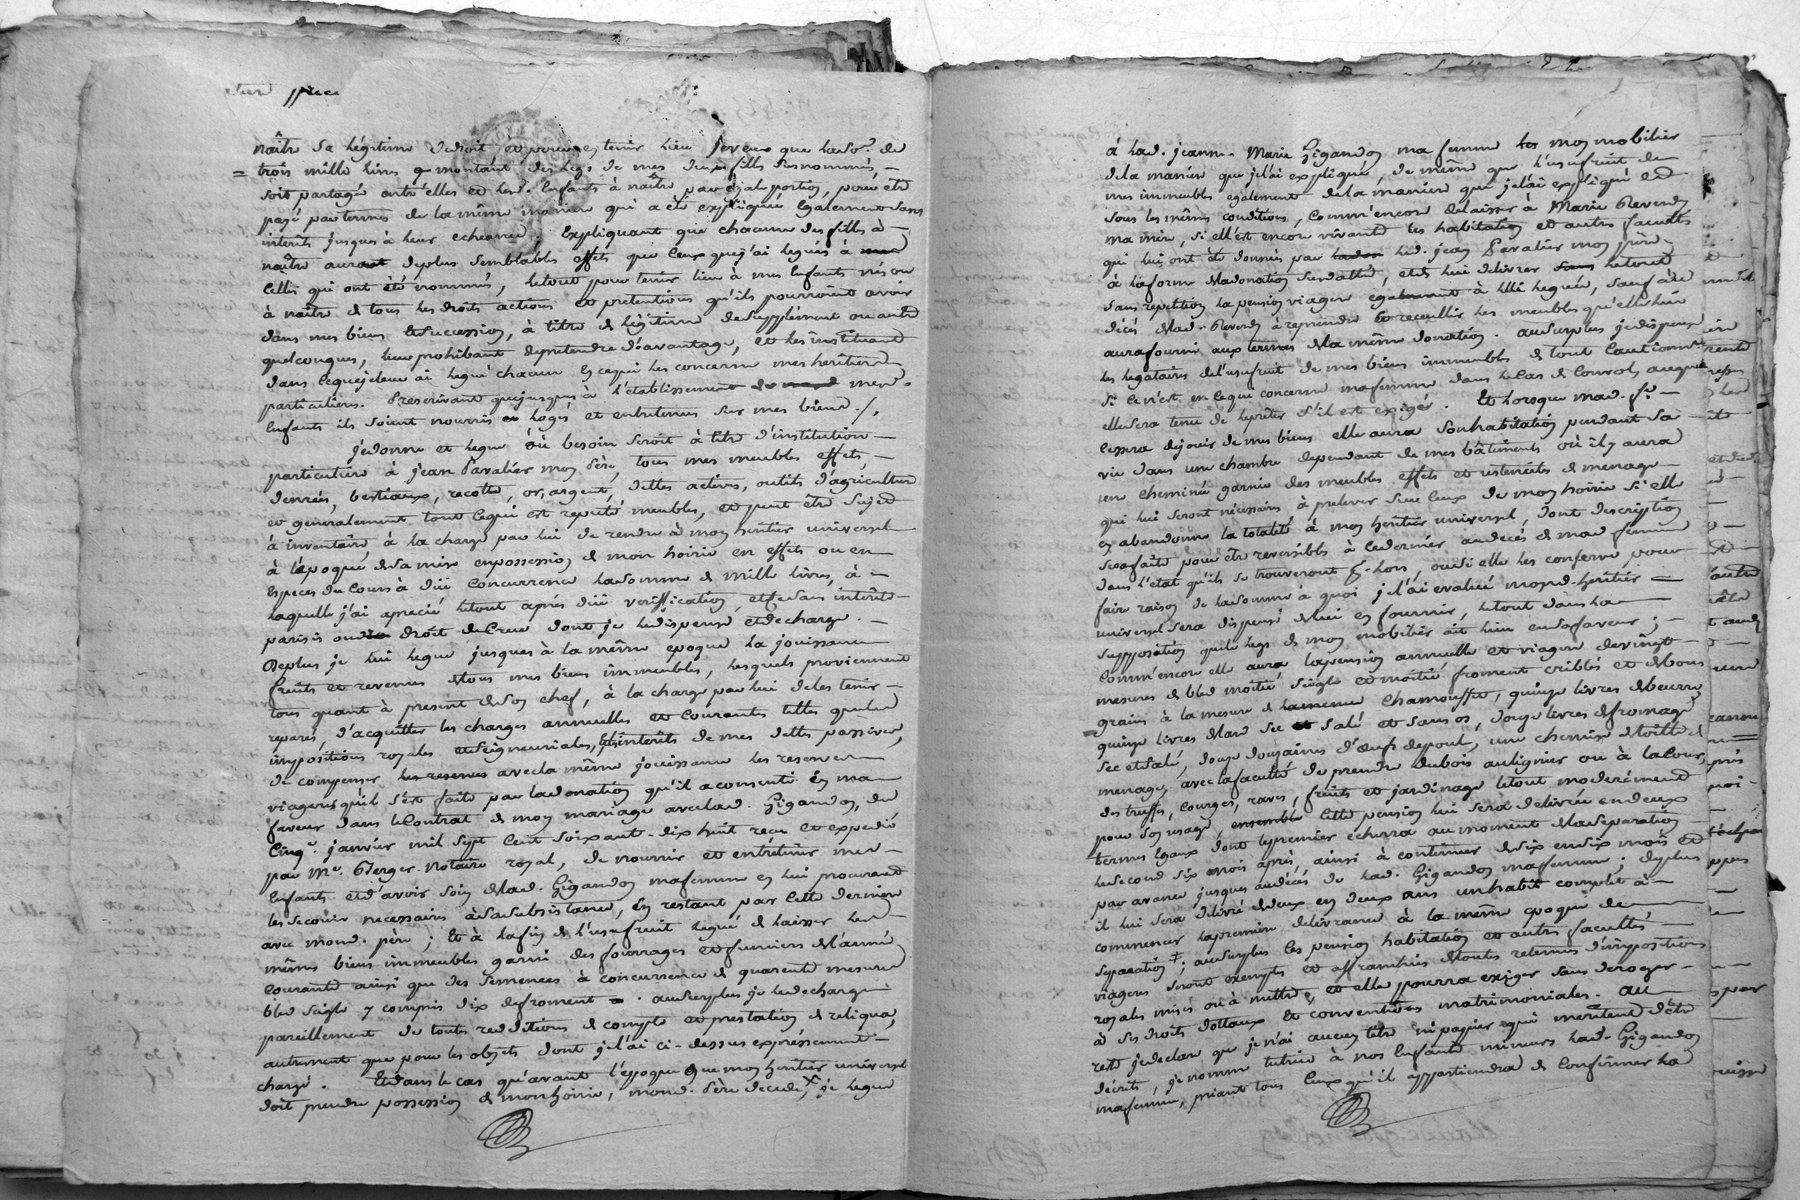 naître sa légitime de droit et pour en tenir lieu je veux que la so.e de
trois mille livres montant des legs de mes deux filles susnommés,
soit partagé entr'elles et les d. Enfants à naître par égale portion, pour être
payé par termes de la même manière qui a été expliquée également sans
intérêts jusques à leur echeance. Expliquant que chacune des filles à
naître auront de plus semblables effets que ceux que j'ai legués à
celles qui ont été nommées, le tout pour tenir lieu à mes Enfants nés ou
à naître de tous les droit actions et pretentions qu'ils pourroient avoir
dans mes biens et succession, à titre de légitime de supplement ou autre
quelconques, leur prohibant de pretendre d'avantage, et les instituant
dans ce que je leur ai legué chacun en ce qui les concerne mes heritiers
particuliers. Prescrivant que jusques à l'établissement de mes
Enfants ils soient nourris logés et entretenus sur mes biens./.
je donne et legue où besoin seroit à titre d'institution
particulière à jean Pavalier mon père, tous mes meubles effets,
denrées, bestiaux, recolte, or, argent, dettes actives, outils d'agriculture
et generalement tout ce qui est reputé meubles, et peut être sujet
à inventaire à la charge par lui de rendre à mon heritier universel
à l'époque de sa mise en possession de mon hoirie en effets ou en
especes de cours à düe concurrence la somme de mille livres, à
laquelle j'ai aprecié le tout après düe verification, et ce sans intérêts
parisis ou droit de Crue dont je le dispense et decharge.
De plus je lui legue jusques à la même epoque la jouissance
fruits et revenus de tous mes biens immeubles, lesquels proviennent
tous quant à present de son chef, à la charge par lui de les tenir
reparés, d'acquitter les charges annuelles et courantes telles que les
impositions royales et seigneuriales, et intérêts de mes dettes passives,
de compenser avec la même jouissance les reserves
viageres qu'il s'est faite par la donation qu'il a consenti en ma
faveur dans le Contrat de mon mariage avec lad. Gigandon, du
Cinq.e janvier mil sept cent soixante-dix huit reçu et expedié
par M.e Verger notaire royal, de nourrir et entretenir mes
Enfants et d'avoir soin de lad. Gigandon ma femme en lui procurant
les secours necessaires à sa subsistance, en restant par cette derniere
avec mond. père; et à la fin de l'usufruit legué de laisser les
mêmes biens immeubles garni des fourrages et fumiers de l'année
courante ainsi que des semences à concurrence de quarente mesures
bled seigle y compris dix de froment. au surplus je le decharge
pareillement de toutes redditions de compte et prestation de reliqua,
autrement que pour les objets dont je l'ai ci-dessus expressement
chargé. Et dans le cas qu'avant l'epoque que mon heritier universel
doit prendre possession de mon hoirie, mond. père decede, je legue
à lad. jeanne Marie Gigandon ma femme mon mobilier
de la maniere que je l'ai expliqué, de même que l'usufruit de
mes immeubles egalement de la maniere que je l'ai expliqué et
sous les mêmes conditions, Comm'encore delaisser à Marie Reverdy
ma mère, si ell'est encore vivante les habitation et autres facultés
qui lui ont été donnés par led. jean Pavalier mon père
à la forme de la donation susdatté, et de lui delivrer le tout
sans repetition la pension viagere à elle leguée, sauf au
decès de lad. Reverdy à reprendre et recueillir les meubles qu'elle lui
aura fourni aux termes de la même donation. Au surplus je dispense
les legataires de l'usufruit de mes biens immeubles de tout Cautionn.t
si ce n'est en ce que concerne ma femme dans le Cas de Convol, auquel
elle sera tenue de le prêter s'il est exigé. Et lorsque mad. f.e
cessera de jouir de mes biens elle aura son habitation pendant sa
vie dans une chambre dependant de mes bâtiments où il y aura
une cheminée garnie des meubles effets et ustenciles de menage
qui lui seront necessaires à prelever sur ceux de mon hoirie si elle
en abandonne la totalité à mon heritier universel, dont description
sera faite pour être reversibles à ce dernier au decès de mad. femme
dans l'etat qu'ils se trouveront p.r lors, ou si elle les conserve pour
faire raison de la somme à quoi je l'ai evalué mond. heritier
universel sera dispensé de lui en fournir, le tout dans la
supposition que le legs de mon mobilier ait lieu en sa faveur;
Comm'encore elle aura la pension annuelle et viagere de vingt
mesures de bled moitié seigle et moitié froment criblés et de bons
grains à la mesure de Chamousset, quinze livres de beurre
quinze livres de lard sec salé et sans os, douze livres de fromage
sec et salé, douze douzaines d'œufs de poule, une chemise de toile de
menage, avec la faculté de prendre du bois au lignier ou à la cour,
des truffes, courges, raves, fruits et jardinage le tout moderément
pour son usage, cette pension lui sera delivrée en deux
termes egaux dont le premier écherra au moment de la separation
le second six mois après, ainsi à continuer de six en six mois et
par avance jusques au decès de lad. Gigandon ma femme; de plus
il lui sera delivré de deux en deux ans un habit complet à
commencer la premiere delivrance à la même epoque de
separation; au surplus les pension habitation et autres facultés
viageres seront exemptes et affranchies de toutes retenues d'impositions
royales mises ou à mettre, et elle pourra exiger sans deroger
à ses droits dottaux et conventions matrimoniales. au
reste je declare que je n'ai aucun titre ni papier qui meritent d'être
décrits, je nomme tutrice à nos Enfants mineurs lad. Gigandon
ma femme, priant tous ceux qu'il appartiendra de confirmer la